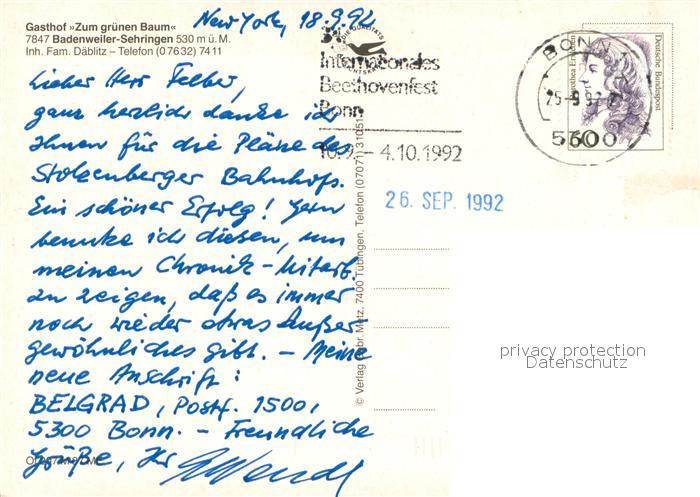 Gasthof »Zum grünen Baum«
7847 Badenweiler-Sehringen 530 m ü. M.
Inh. Fam. Däblitz – Telefon (0 76 32) 74 11
New York, 18.9.92
Lieber Herr Felber,
ganz herzlich danke ich
Ihnen für die Pläne des
Stolzenberger Bahnhofs.
Ein schöner Erfolg! Gern
benutze ich diesen, um
meinen Chronik-Mitarb.
zu zeigen, daß es immer
noch wieder etwas Außer-
gewöhnliches gibt. – Meine
neue Anschrift:
BELGRAD, Postf. 1500,
5300 Bonn. – Freundliche
Grüße, Ihr
© Verlag Gebr. Metz, 7400 Tübingen, Telefon (07071) 31051
Internationales
Beethovenfest
Bonn
10.9. – 4.10.1992
BONN
25.-9.92
5300
Deutsche Bundespost
26. SEP. 1992
privacy protection
Datenschutz